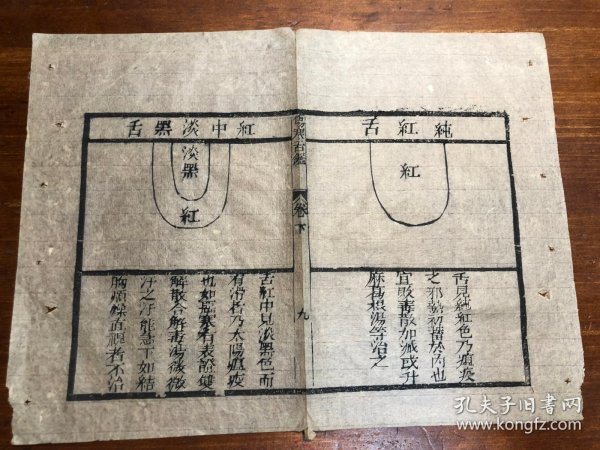 純紅舌
紅
舌見純紅色乃瘟疫
之邪熱初蓄於內也
宜敗毒散加減或升
麻葛根湯等治之
傷寒舌鑑
卷下
九
紅中淡黑舌
淡黑
紅
舌紅中見淡黑色而
有滑者乃太陽瘟疫
也如惡寒有表證雙
解散合解毒湯微微
汗之汗罷急下如結
胸煩躁直視者不治
孔夫子旧书网
www.kongfz.com